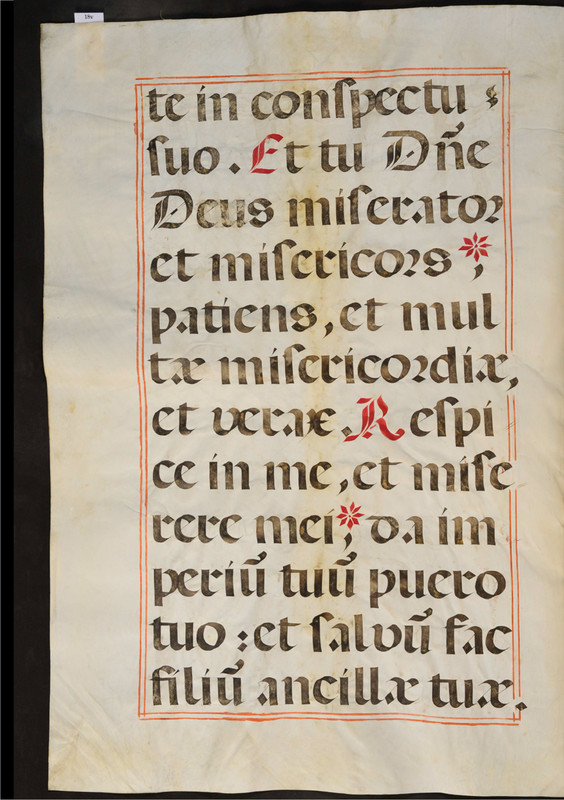 18v
te in conſpectu :
ſuo . Et tu Dn̄e
Deus miſerator
et miſericors * ;
patiens, et mul
tæ miſericordiæ,
et verax. Reſpi
ce in me, et miſe
rere mei; * da im
periū tuū puero
tuo : et ſalvū fac
filiū ancillæ tuæ.